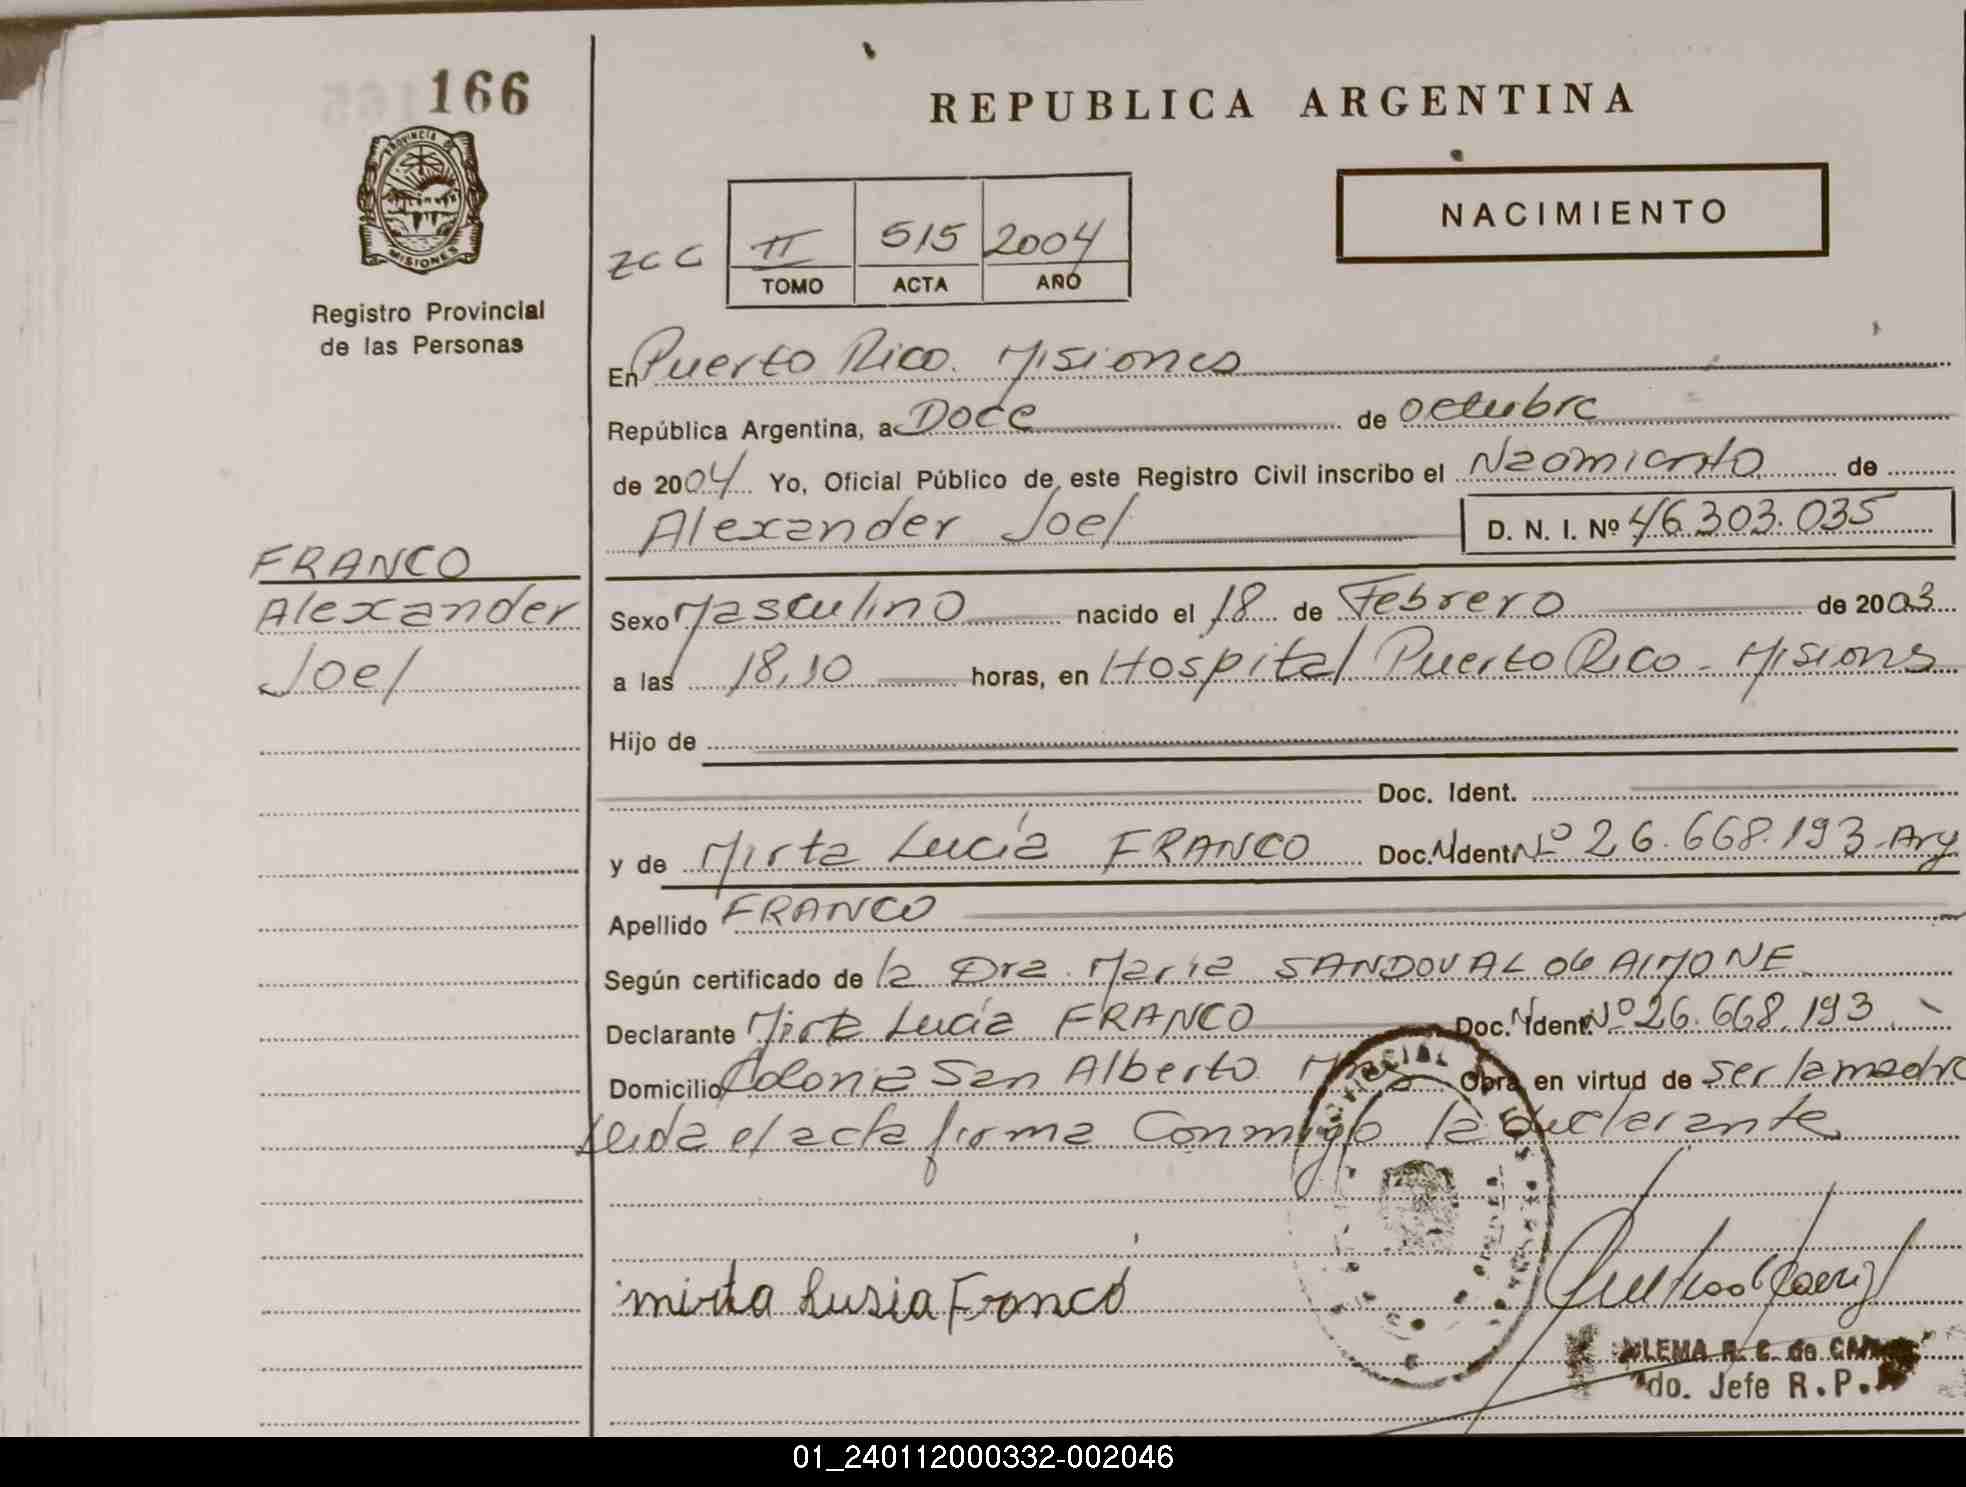 166
PROVINCIA DE
MISIONES
Registro Provincial
de las Personas
REPUBLICA ARGENTINA
NACIMIENTO
II 515 2004
TOMO ACTA AÑO
En Puerto Rico. Misiones
República Argentina, a Doce de octubre
de 2004 Yo, Oficial Público de este Registro Civil inscribo el Nacimiento de
Alexander Joel D. N. I. Nº 46.303.035
FRANCO
Alexander
Joel
Sexo Masculino nacido el 18 de Febrero de 2003
a las 18,10 horas, en Hospital Puerto Rico - Misiones
Hijo de
Doc. Ident.
y de Mirta Lucía FRANCO Doc. Ident. Nº 26.668.193 - Arg
Apellido FRANCO
Según certificado de la Dra. María SANDOVAL de AIMONE
Declarante Mirta Lucía FRANCO Doc. Ident. Nº 26.668.193
Domicilio Colonia San Alberto Obra en virtud de ser la madre
Leida el acta firma Conmigo la declarante
mirta Lusia Franco
LEMA R. C. de
do. Jefe R.P.
01_240112000332-002046